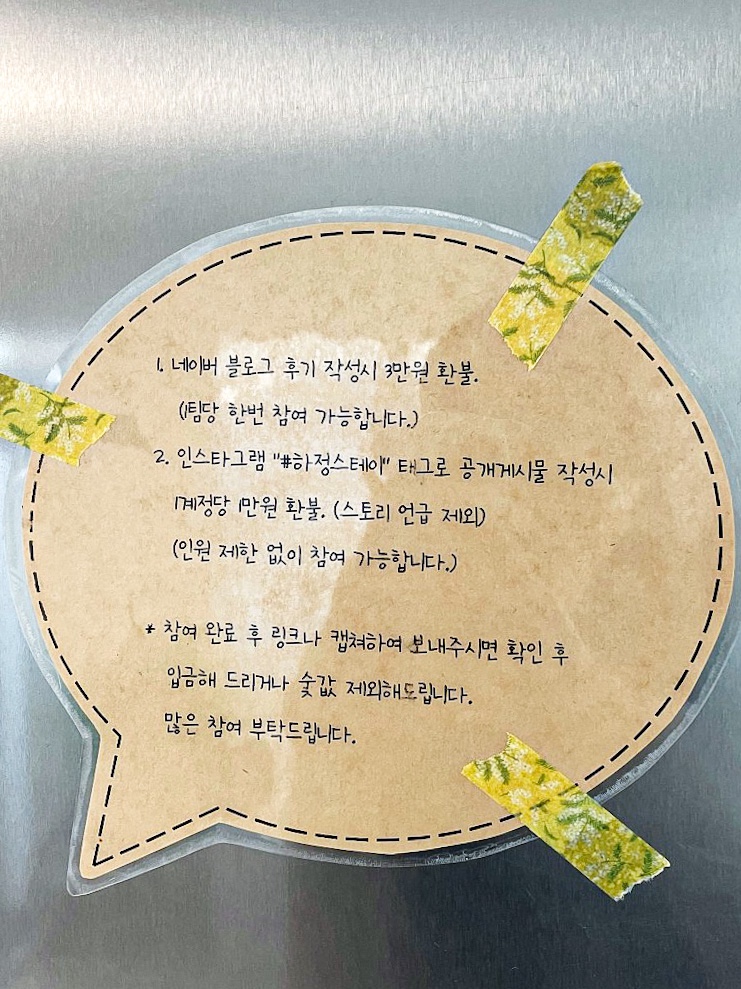 1. 네이버 블로그 후기 작성시 3만원 환불.
(1팀당 한번 참여 가능합니다.)
2. 인스타그램 "#하정스테이" 태그로 공개게시물 작성시
1계정당 1만원 환불. (스토리 언급 제외)
(인원 제한 없이 참여 가능합니다.)
* 참여 완료 후 링크나 캡쳐하여 보내주시면 확인 후
입금해 드리거나 숯값 제외해드립니다.
많은 참여 부탁드립니다.